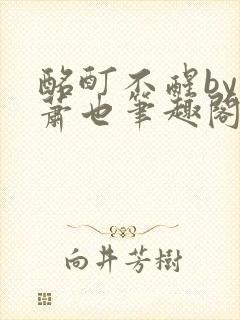 酩酊不醒by
萧也筆趣閣
向井芳樹